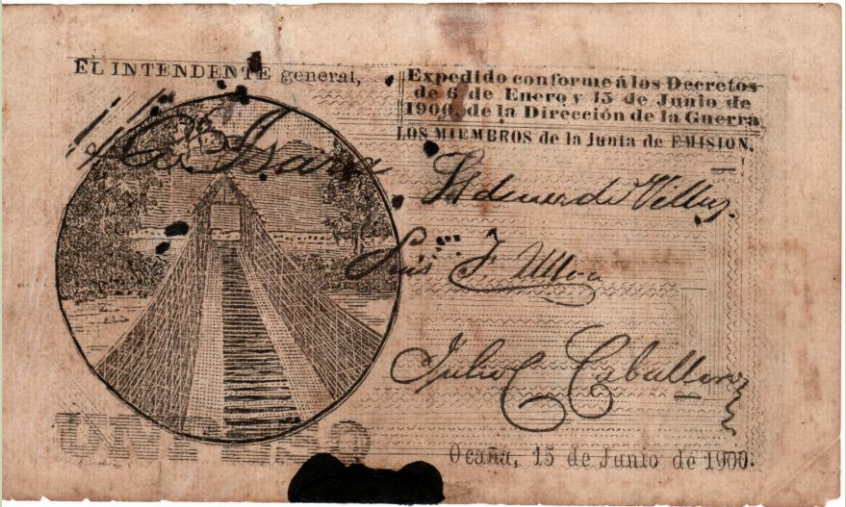 EL INTENDENTE general,
Expedido conforme á los Decretos
de 6 de Enero y 15 de Junio de
1900, de la Dirección de la Guerra
LOS MIEMBROS de la Junta de EMISION.
Luis F. Ulloa
Julio C. Caballero
UN PESO
Ocaña, 15 de Junio de 1900.